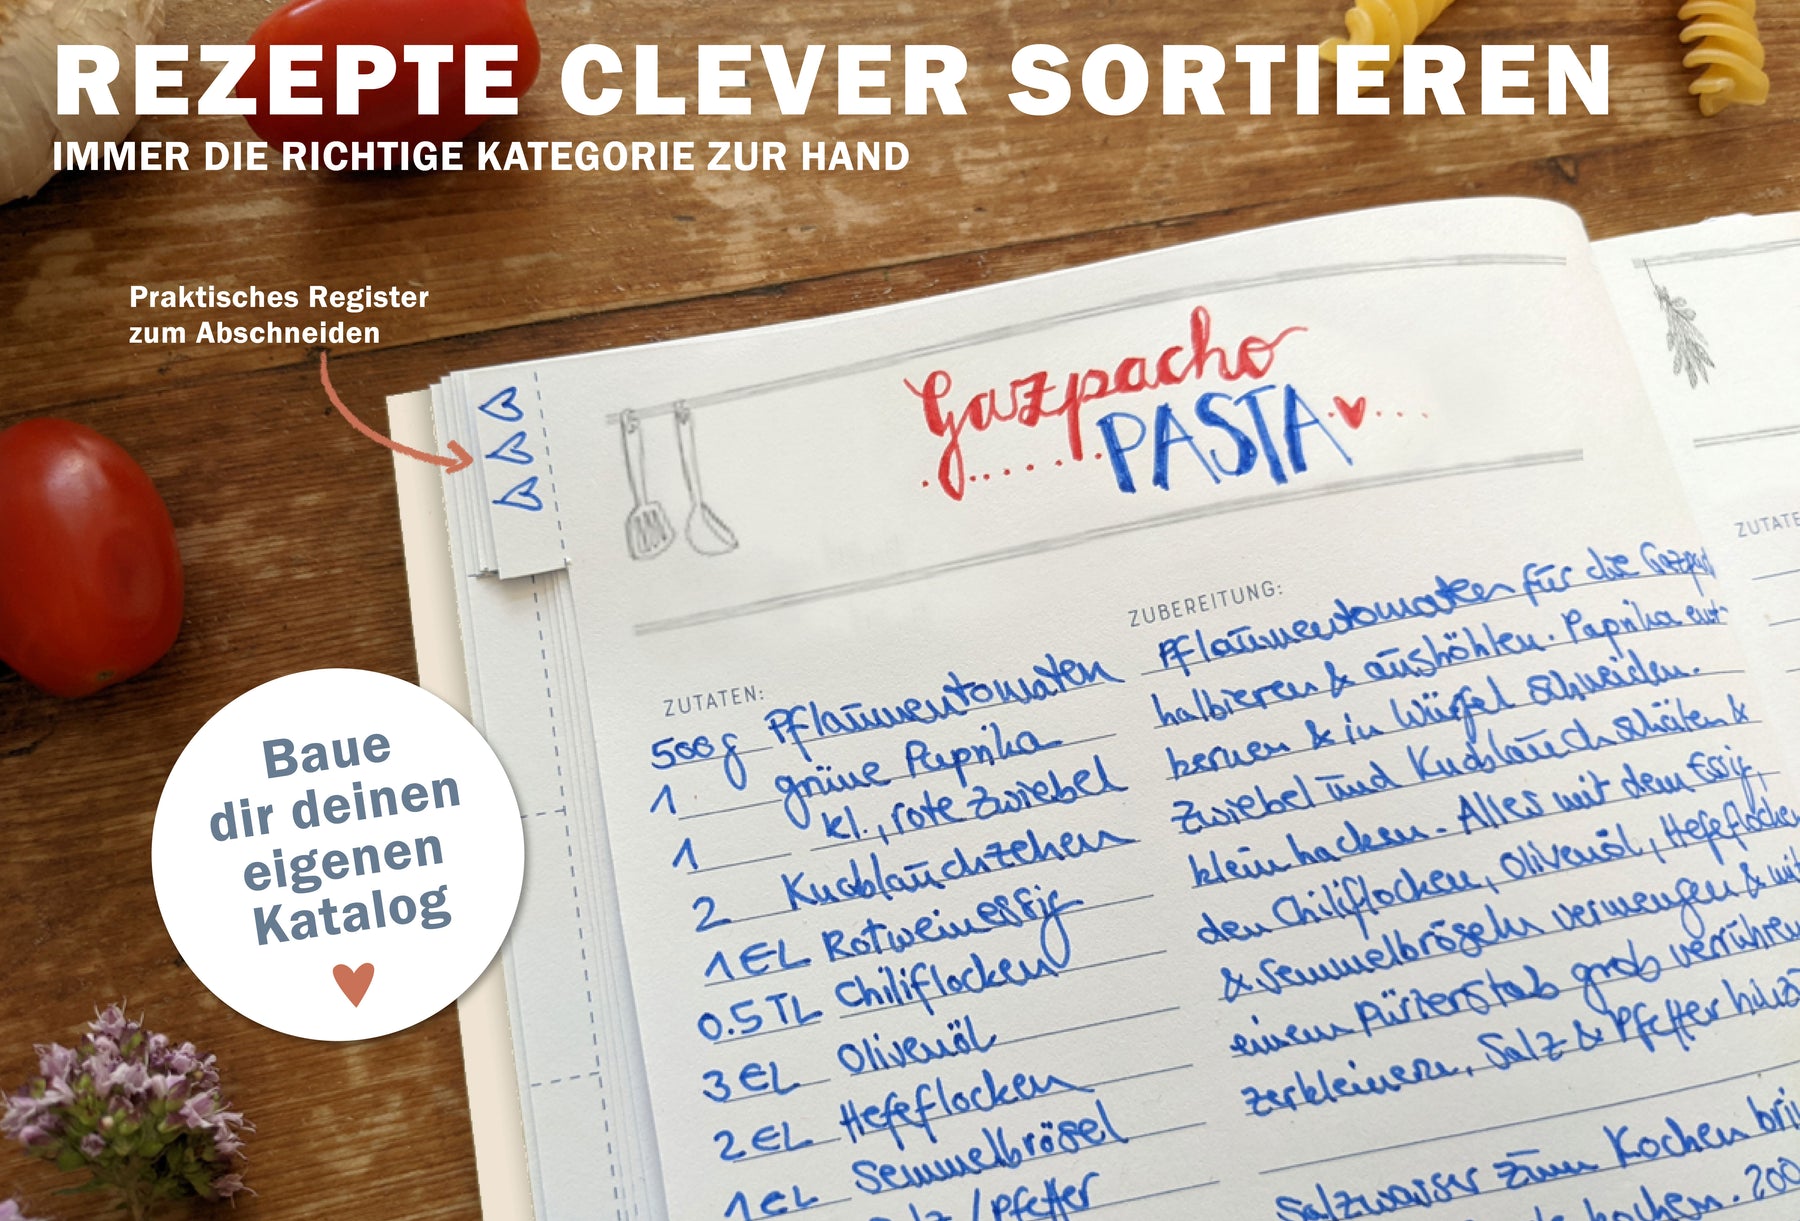 REZEPTE CLEVER SORTIEREN
IMMER DIE RICHTIGE KATEGORIE ZUR HAND
Praktisches Register
zum Abschneiden
Baue
dir deinen
eigenen
Katalog
Gazpacho
PASTA
ZUTATEN:
500g Pflaumentomaten
1 grüne Paprika
1 kl., rote Zwiebel
2 Knoblauchzehen
1 EL Rotweinessig
0.5 TL Chiliflocken
3 EL Olivenöl
2 EL Hefeflocken
1 EL Semmelbrösel
/Pfeffer
ZUBEREITUNG:
Pflaumentomaten für die
halbieren & aushöhlen. Paprika ent-
kernen & in Würfel schneiden.
Zwiebel und Knoblauch schälen &
klein hacken. Alles mit dem Essig,
den Chiliflocken, Olivenöl, Hefeflocken
& Semmelbröseln vermengen & mit
einem Pürierstab grob verrühren
zerkleinern, Salz & Pfeffer
Salzwasser zum Kochen
kochen. 200